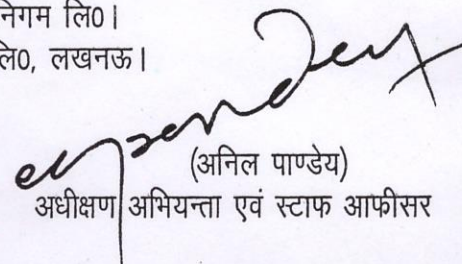 निगम लि0।
लि0, लखनऊ।
(अनिल पाण्डेय)
अधीक्षण अभियन्ता एवं स्टाफ आफीसर